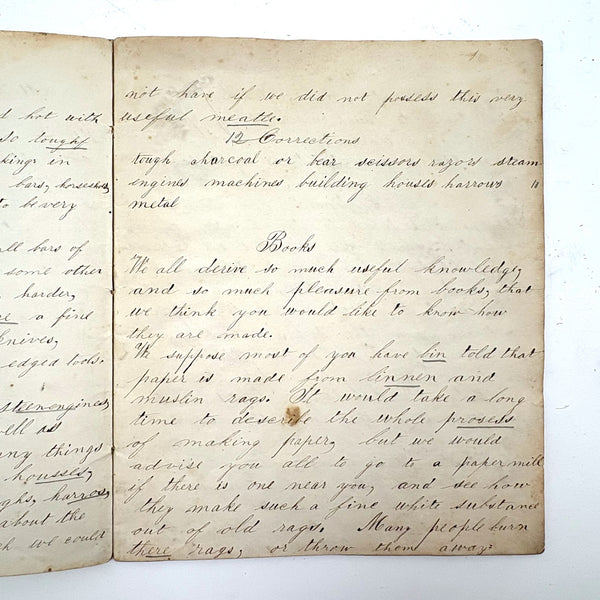 hot with
so tough
kings in
bars, horseshoes,
to be very
all bars of
some other
harder,
a fine
knives,
edged tools.
steenengines,
well as
any things
housses,
ughs, harros,
about the
ch we could
not have if we did not possess this very
useful meatle.
12 Corrections
tough charcoal or bear scissors razors steam
engines machines building houses harrows
metal
Books
We all derive so much useful knowledge,
and so much pleasure from books, that
we think you would like to know how
they are made.
We suppose most of you have bin told that
paper is made from linnen and
muslin rags. It would take a long
time to describe the whole prosess
of making paper, but we would
advise you all to go to a paper mill
if there is one near you, and see how
they make such a fine white substance
out of old rags. Many people burn
there rags, or throw them away.